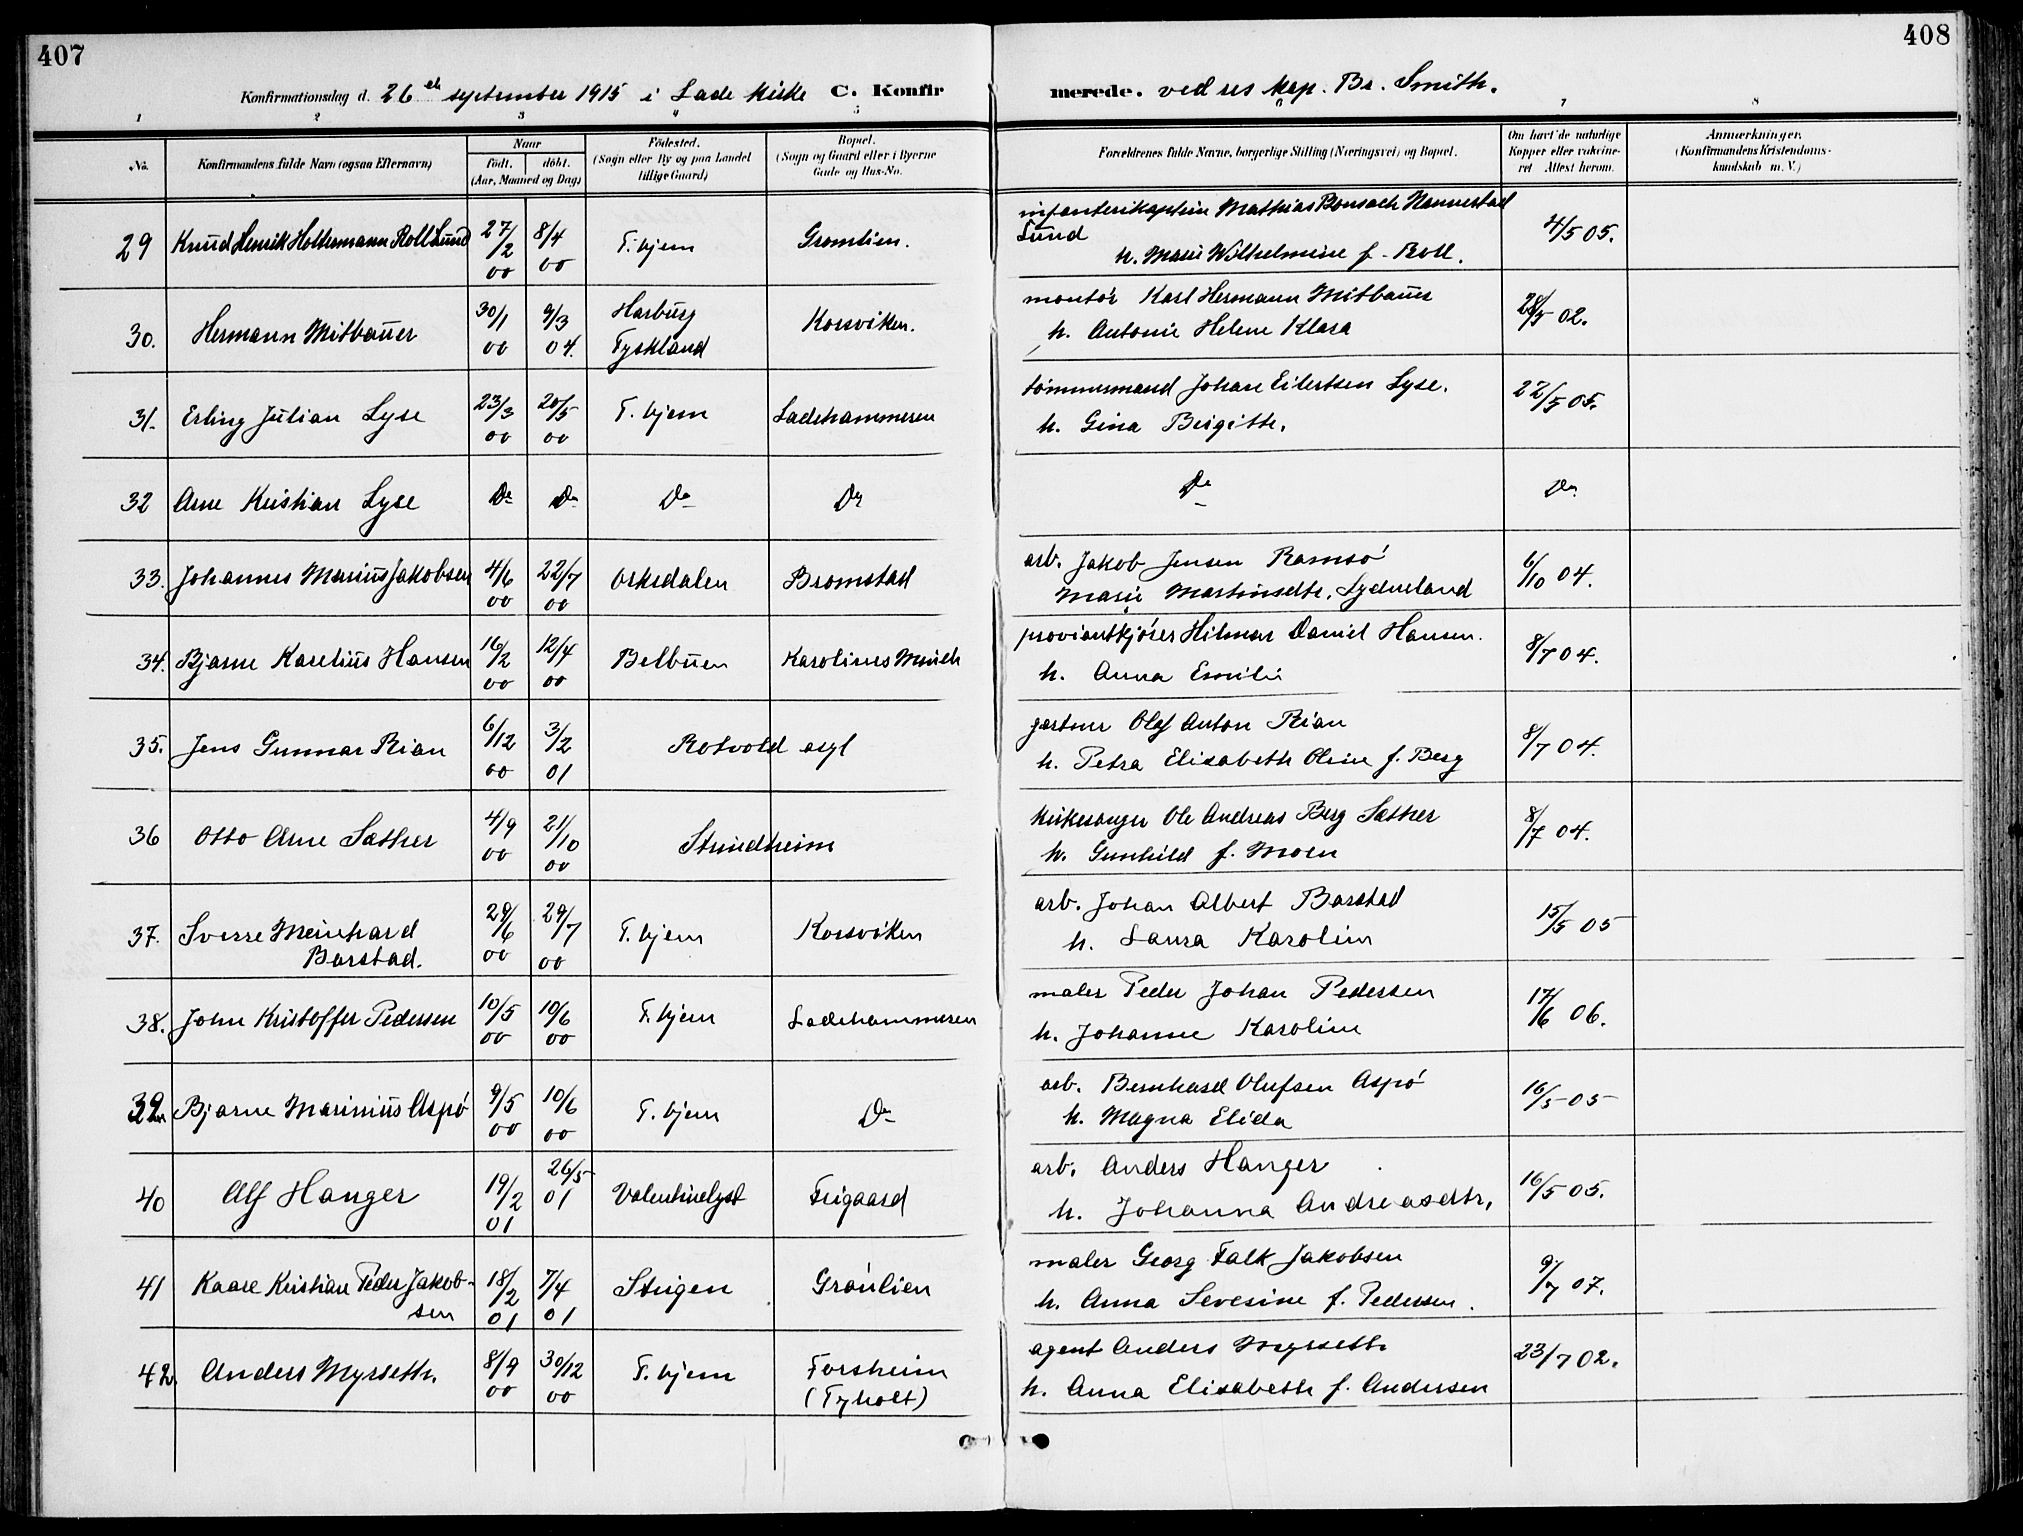 407
408
Konfirmationsdag d. 26 september 1915 i Lade kirke C. Konfirmerede. ved res kap. Br. Smith.
1 2 3 4 5 6 7 8
No.
Konfirmandens fulde Navn (ogsaa Efternavn)
Naar
födt. döbt.
(Aar, Maaned og Dag)
Födested.
(Sogn eller By og paa Landet
tillige Gaard)
Bopæl.
(Sogn og Gaard eller i Byerne
Gade og Hus-No.
Forældrenes fulde Navne, borgerlige Stilling (Næringsvei) og Bopæl.
Om havt de naturlige
Kopper eller vakcine-
ret Attest herom.
Anmærkninger.
(Konfirmandens Kristendoms-
kundskab m. V.)
29 Knud Henrik Holtermann Roll Lund 27/2 00 8/4 00 T.hjem Gramlien. infanterikaptein Mathias Bonsach Nannestad
Lund
h. Marie Wilhelmine f. Roll. 4/5 05.
30. Hermann Mitbauer 30/1 00 9/3 04. Harburg
Tyskland Korsviken. montör Karl Hermann Mitbauer
h. Antonie Helene Klara 28/5 02.
31. Erling Julian Lyse 23/3 00 20/5 00 T. hjem Ladehammeren tömmermand Johan Eilertsen Lyse.
h. Gina Birgitte. 22/5 05.
32 Arne Kristian Lyse Do Do Do Do Do Do
33. Johannes Marius Jakobsen 4/6 00 22/7 00 Orkedalen Bromstad arb. Jakob Jensen Ramsö
Marie Martinsdtr. 6/10 04.
34. Bjarne Karelius Hansen 16/2 00 12/4 00 Belbuen Karolines Minde proviantkjörer Hilmar Daniel Hansen.
h. Anna Emilie 8/7 04.
35. Jens Gunnar Rian 6/12 00 3/2 01 Rotvold asyl gartner Olaf Anton Rian
h. Petra Elisabeth Oline f. Berg 8/7 04.
36 Otto Arne Sæther 4/9 00 21/10 00 Strindheim kirkesanger Ole Andreas Berg Sæther
h. Gunhild f. Moen 8/7 04.
37. Sverre Meinhard
Barstad. 29/6 00 29/7 00 T.hjem Korsviken arb. Johan Albert Barstad
h. Laura Karoline 15/5 05
38. John Kristoffer Pedersen 10/5 00 10/6 00 T.hjem Ladehammeren maler Peder Johan Pedersen
h. Johanne Karoline 17/6 06.
39. Bjarne Marinius Aspö 9/5 00 10/6 00 T. hjem Do arb. Bernhard Olufsen Aspö
h. Magna Elida 16/5 05
40 Alf Hanger 19/2 01 26/5 01 Valentinelyst Frigaard arb. Anders Hanger
h. Johanna Andreasdtr. 16/5 05.
41 Kaare Kristian Peder Jakob-
sen 18/2 01 7/4 01 Steigen Graulien maler Georg Falk Jakobsen
h. Anna Severine f. Pedersen. 9/7 07.
42. Anders Myrseth. 8/9 00 30/12 00 T. hjem Forsheim
(Tyholt) agent Anders Myrseth
h. Anna Elisabeth f. Andersen 23/7 02.